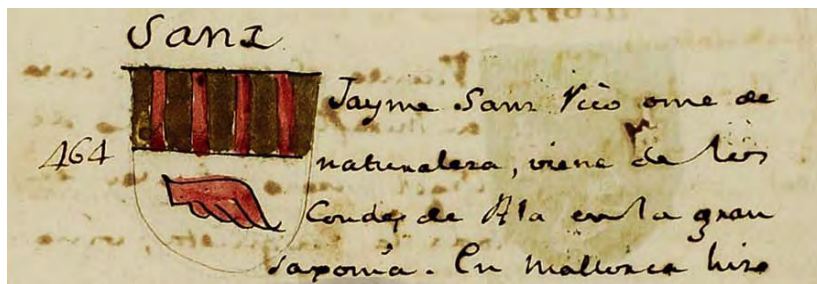 Sanz
464
Jayme Sanz Rico ome de
naturaleza, viene de los
Condes de Ala en la gran
saxonia. En Mallorca hizo